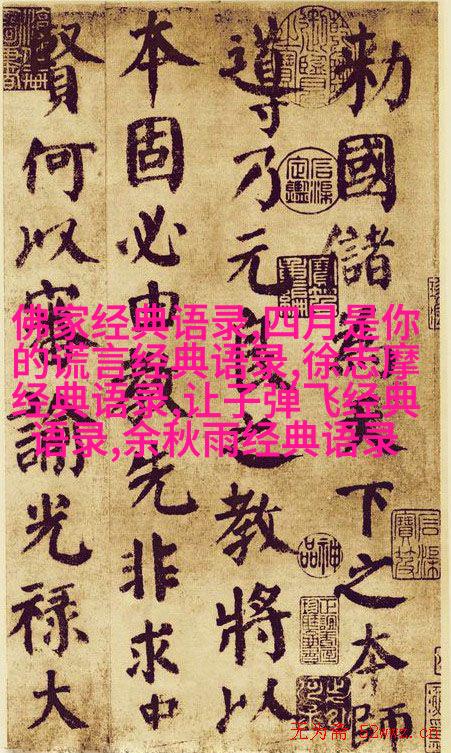 勅國儲為天下之本師
導乃元良之教將以
本固必由教先非求中
賢何以審諭光祿大
佛家经典语录,四月是你
的谎言经典语录,徐志摩
经典语录,让子弹飞经典
语录,余秋雨经典语录
神品
无为斋